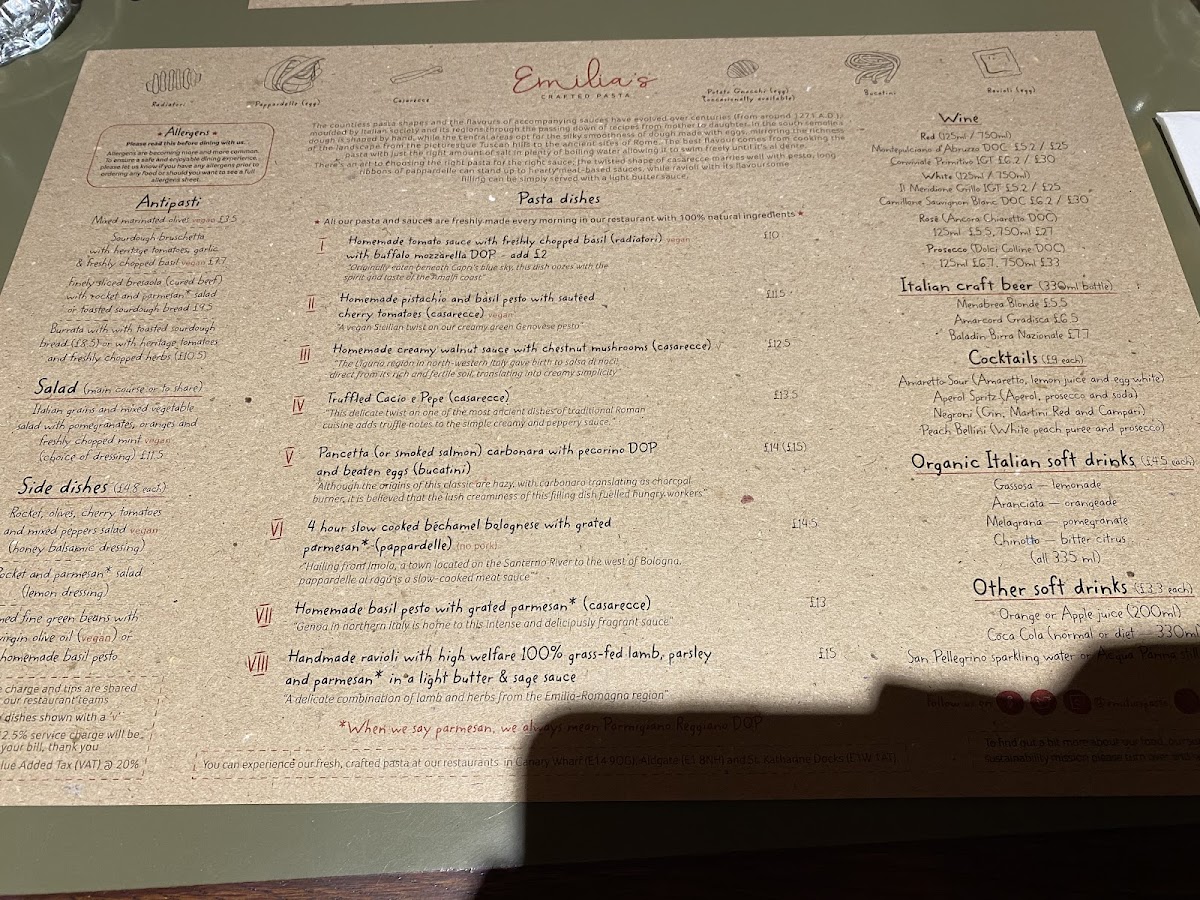 Emilia's
CRAFTED PASTA
Radiatori
Pappardelle (egg)
Casarecce
Potato Gnocchi (egg)
(occasionally available)
Bucatini
Ravioli (egg)
The countless pasta shapes and the flavours of accompanying sauces have evolved over centuries (from around 1271 A.D.),
moulded by Italian society and its regions through the passing down of recipes from mother to daughter. In the south semolina
dough is shaped by hand, while the Central areas opt for the silky smoothness of dough made with eggs, mirroring the richness
of the landscape from the picturesque Tuscan hills to the ancient sites of Rome. The best flavour comes from cooking the
pasta with just the right amount of salt in plenty of boiling water allowing it to swim freely until it's al dente.
There's an art to choosing the right pasta for the right sauce; the twisted shape of casarecce marries well with pesto, long
ribbons of pappardelle can stand up to hearty meat-based sauces, while ravioli with its flavoursome
filling can be simply served with a light butter sauce.
• Allergens •
Please read this before dining with us.
Allergens are becoming more and more common.
To ensure a safe and enjoyable dining experience,
please let us know if you have any allergens prior to
ordering any food or should you want to see a full
allergens sheet.
Antipasti
Mixed marinated olives vegan £3.5
Sourdough bruschetta
with heritage tomatoes, garlic
& freshly chopped basil vegan £7.7
Finely sliced bresaola (cured beef)
with rocket and parmesan* salad
or toasted sourdough bread £9.5
Burrata with with toasted sourdough
bread (£8.5) or with heritage tomatoes
and freshly chopped herbs (£10.5)
Salad (main course or to share)
Italian grains and mixed vegetable
salad with pomegranates, oranges and
freshly chopped mint vegan
(choice of dressing) £11.5
Side dishes (£4.8 each)
Rocket, olives, cherry tomatoes
and mixed peppers salad vegan
(honey balsamic dressing)
ocket and parmesan* salad
(lemon dressing)
med fine green beans with
virgin olive oil (vegan) or
homemade basil pesto
charge and tips are shared
our restaurant teams
dishes shown with a 'v'
2.5% service charge will be
your bill, thank you
lue Added Tax (VAT) @ 20%
Pasta dishes
• All our pasta and sauces are freshly made every morning in our restaurant with 100% natural ingredients •
I Homemade tomato sauce with freshly chopped basil (radiatori) vegan £10
with buffalo mozzarella DOP - add £2
"Originally eaten beneath Capri's blue sky, this dish oozes with the
spirit and taste of the Amalfi coast"
II Homemade pistachio and basil pesto with sautéed £11.5
cherry tomatoes (casarecce) vegan
"A vegan Sicilian twist on our creamy green Genovese pesto"
III Homemade creamy walnut sauce with chestnut mushrooms (casarecce) v £12.5
"The Liguria region in north-western Italy gave birth to salsa di noci,
direct from its rich and fertile soil, translating into creamy simplicity"
IV Truffled Cacio e Pepe (casarecce) £13.5
"This delicate twist on one of the most ancient dishes of traditional Roman
cuisine adds truffle notes to the simple creamy and peppery sauce."
V Pancetta (or smoked salmon) carbonara with pecorino DOP £14 (£15)
and beaten eggs (bucatini)
"Although the origins of this classic are hazy, with carbonara translating as charcoal
burner, it is believed that the lush creaminess of this filling dish fuelled hungry workers"
VI 4 hour slow cooked béchamel bolognese with grated £14.5
parmesan* (pappardelle) (no pork)
"Hailing from Imola, a town located on the Santerno River to the west of Bologna,
pappardelle al ragù is a slow-cooked meat sauce"
VII Homemade basil pesto with grated parmesan* (casarecce) £13
"Genoa in northern Italy is home to this intense and deliciously fragrant sauce"
VIII Handmade ravioli with high welfare 100% grass-fed lamb, parsley £15
and parmesan* in a light butter & sage sauce
"A delicate combination of lamb and herbs from the Emilia-Romagna region"
*When we say parmesan, we always mean Parmigiano Reggiano DOP
You can experience our fresh, crafted pasta at our restaurants in Canary Wharf (E14 9DG), Aldgate (E1 8NH) and St. Katharine Docks (E1W 1AT)
Wine
Red (125ml / 750ml)
Montepulciano d'Abruzzo DOC £5.2 / £25
Coronate Primitivo IGT £6.2 / £30
White (125ml / 750ml)
Il Meridione Grillo IGT £5.2 / £25
Camillona Sauvignon Blanc DOC £6.2 / £30
Rosé (Ancora Chiaretto DOC)
125ml £5.5, 750ml £27
Prosecco (Dolci Colline DOC)
125ml £6.7, 750ml £33
Italian craft beer (330ml bottle)
Menabrea Blonde £5.5
Amarcord Gradisca £6.5
Baladin Birra Nazionale £7.7
Cocktails (£9 each)
Amaretto Sour (Amaretto, lemon juice and egg white)
Aperol Spritz (Aperol, prosecco and soda)
Negroni (Gin, Martini Red and Campari)
Peach Bellini (White peach puree and prosecco)
Organic Italian soft drinks (£4.5 each)
Gassosa – lemonade
Aranciata – orangeade
Melagrana – pomegranate
Chinotto – bitter citrus
(all 335 ml)
Other soft drinks (£3.3 each)
Orange or Apple juice (200ml)
Coca Cola (normal or diet - 330ml
San Pellegrino sparkling water or Acqua Panna still
Follow us on @emiliaspasta
To find out a bit more about our food, our
sustainability mission please turn over